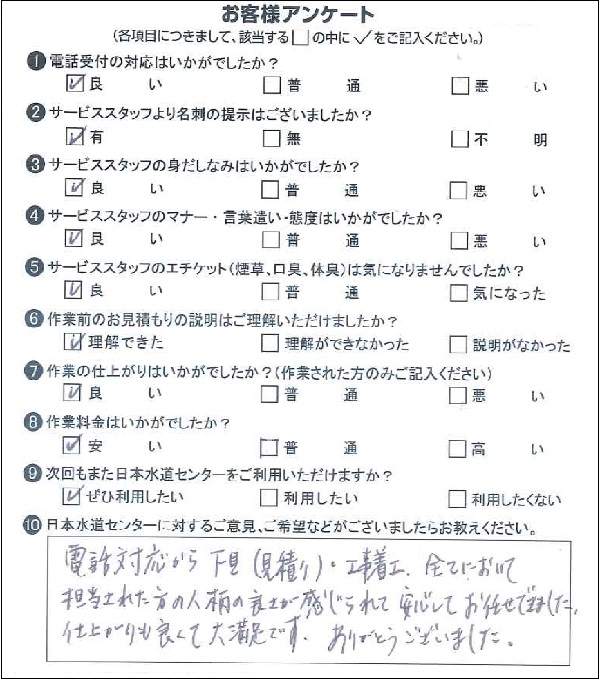 お客様アンケート
(各項目につきまして、該当する□の中に✓をご記入ください。)
❶ 電話受付の対応はいかがでしたか?
☑ 良い □ 普通 □ 悪い
❷ サービススタッフより名刺の提示はございましたか?
☑ 有 □ 無 □ 不明
❸ サービススタッフの身だしなみはいかがでしたか?
☑ 良い □ 普通 □ 悪い
❹ サービススタッフのマナー・言葉遣い・態度はいかがでしたか?
☑ 良い □ 普通 □ 悪い
❺ サービススタッフのエチケット(煙草、口臭、体臭)は気になりませんでしたか?
☑ 良い □ 普通 □ 気になった
❻ 作業前のお見積もりの説明はご理解いただけましたか?
☑ 理解できた □ 理解ができなかった □ 説明がなかった
❼ 作業の仕上がりはいかがでしたか?(作業された方のみご記入ください)
☑ 良い □ 普通 □ 悪い
❽ 作業料金はいかがでしたか?
☑ 安い □ 普通 □ 高い
❾ 次回もまた日本水道センターをご利用いただけますか?
☑ ぜひ利用したい □ 利用したい □ 利用したくない
❿ 日本水道センターに対するご意見、ご希望などがございましたらお教えください。
電話対応から下見(見積り)・工事着工、全てにおいて
担当された方の人柄の良さが感じられて安心してお任せできました。
仕上がりも良くて大満足です。ありがとうございました。